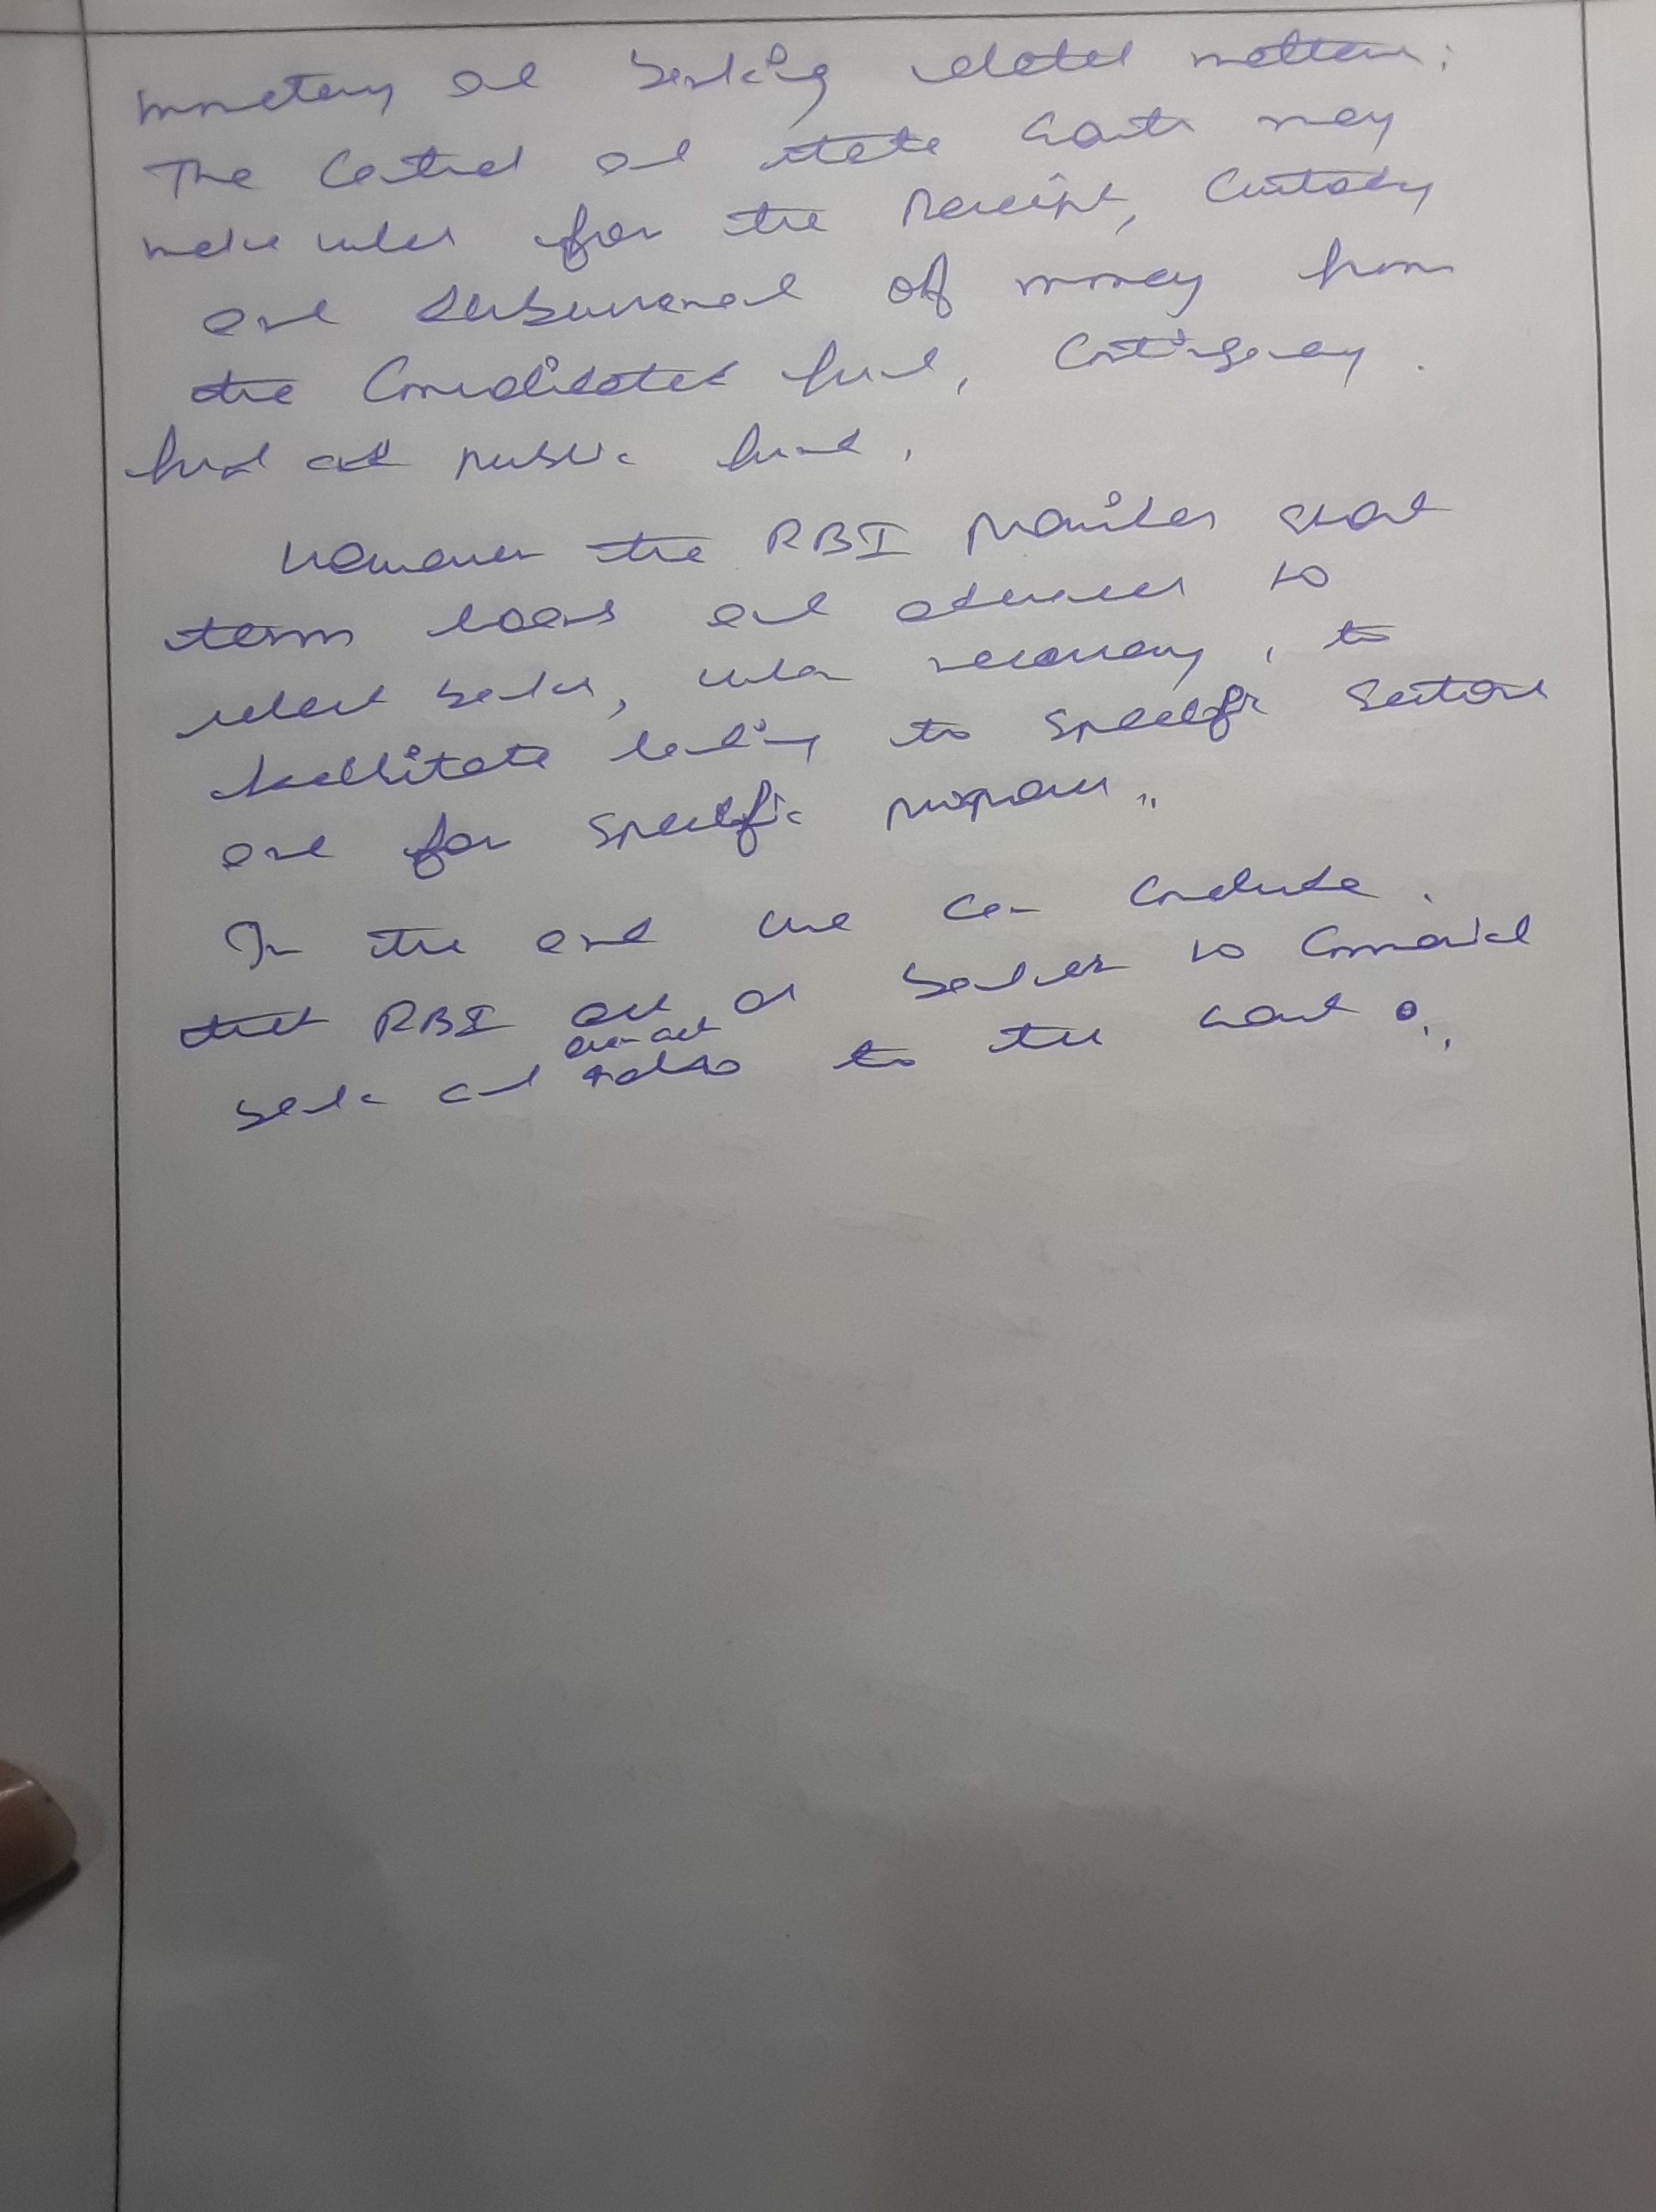 monetary and banking related matters.
The Central and state Govts may
make rules for the receipt, Custody
and disbursement of money from
the Consolidated fund, Contingency
fund and public fund.
However the RBI provides short
term loans and advances to
select banks, when necessary, to
facilitate lending to specific sectors
and for specific purposes.
In the end we can conclude
that RBI act as banker to Commercial
bank and also to the Govt.